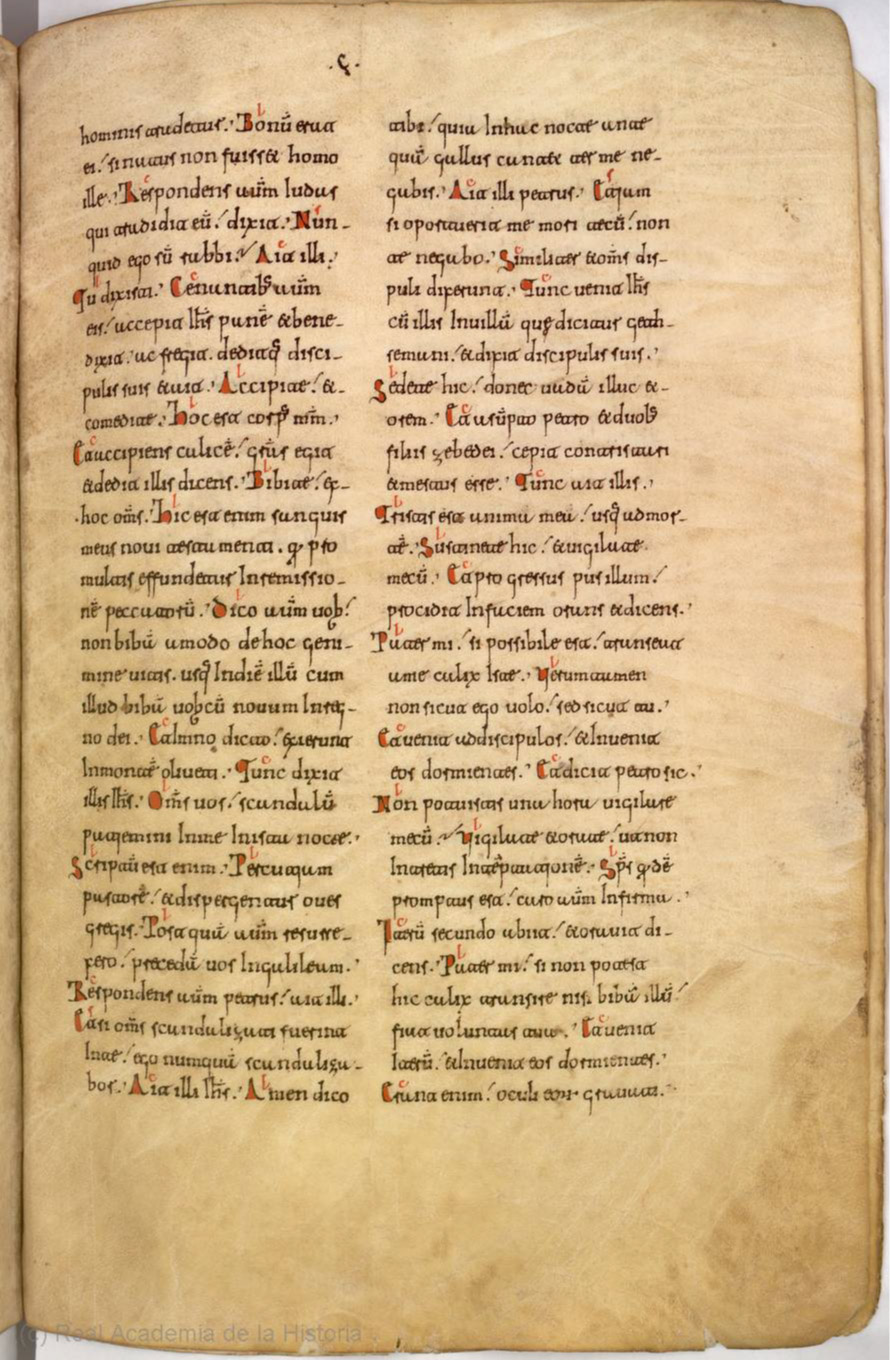 .ç.
hominis tradetur. Bonū erat
ei. si natus non fuisset homo
ille. Respondens aūm Iudas
qui tradidit eū. dixit. Nun-
quid ego sū rabbi. Ait illi.
Tu dixisti. Cenantibꝰ aūm
eis. accepit Ihs̄ panē & bene-
dixit. ac fregit. deditq̄ disci-
pulis suis & ait. Accipite. &-
comedite. Hoc est corpꝰ mm̄.
Et accipiens calicē. grās egit
& dedit illis dicens. Bibite. ex-
hoc om̄s. Hic est enim sanguis
meus noui testamenti. q̄ pro
multis effundetur In remissio-
nē peccatorū. Dico aūm uob̄.
non bibā amodo de hoc geni-
mine uitis. usq̄ In diē illū cum
illud bibā uobcū nouum In reg-
no dei. Et himno dicto. exierunt
In montē oliueti. Tunc dixit
illis Ihs̄. Om̄s uos. scandalū
patiemini In me In ista nocte.
Scriptū est enim. Percutiam
pastorē. & dispergentur oues
gregis. Postquā aūm resurre-
xero. precedā uos In galileam.
Respondens aūm petrus. ait illi.
Etsi om̄s scandalizati fuerint
In te. ego numquā scandaliza-
bor. Ait illi Ihs̄. Amen dico
tibi. quia In hac nocte ante
quā gallus cantet ter me ne-
gabis. Ait illi petrus. Etiam
si oportuerit me mori tecū. non
te negabo. Similiter & om̄s dis-
puli dixerunt. Tunc uenit Ihs̄
cū illis In uillā que dicitur geth-
semani. & dixit discipulis suis.
Sedete hic. donec uadā illuc &-
orem. Et adsūpto petro & duobꝰ
filiis zebedei. cepit contristari
& mestus esse. Tunc ait illis.
Tristis est anima mea. usq̄ ad mor-
tē. Sustinete hic. & uigilate
mecū. Et progressus pusillum.
procidit In faciem orans & dicens.
Pater mi. si possibile est. transeat
a me calix Iste. Uerumtamen
non sicut ego uolo. sed sicut tu.
Et uenit ad discipulos. & Inuenit
eos dormientes. Et dicit petro sic.
Non potuistis una hora uigilare
mecū. Uigilate & orate. ut non
Intretis In teptationē. Sps̄ qdē
promptus est. caro aūm Infirma.
Iterū secundo abiit. & orauit di-
cens. Pater mi. si non potest
hic calix transire nisi bibā illū.
fiat uoluntas tua. Et uenit
Iterū. & Inuenit eos dormientes.
Erant enim. oculi eor̄ grauati.
(c) Real Academia de la Historia